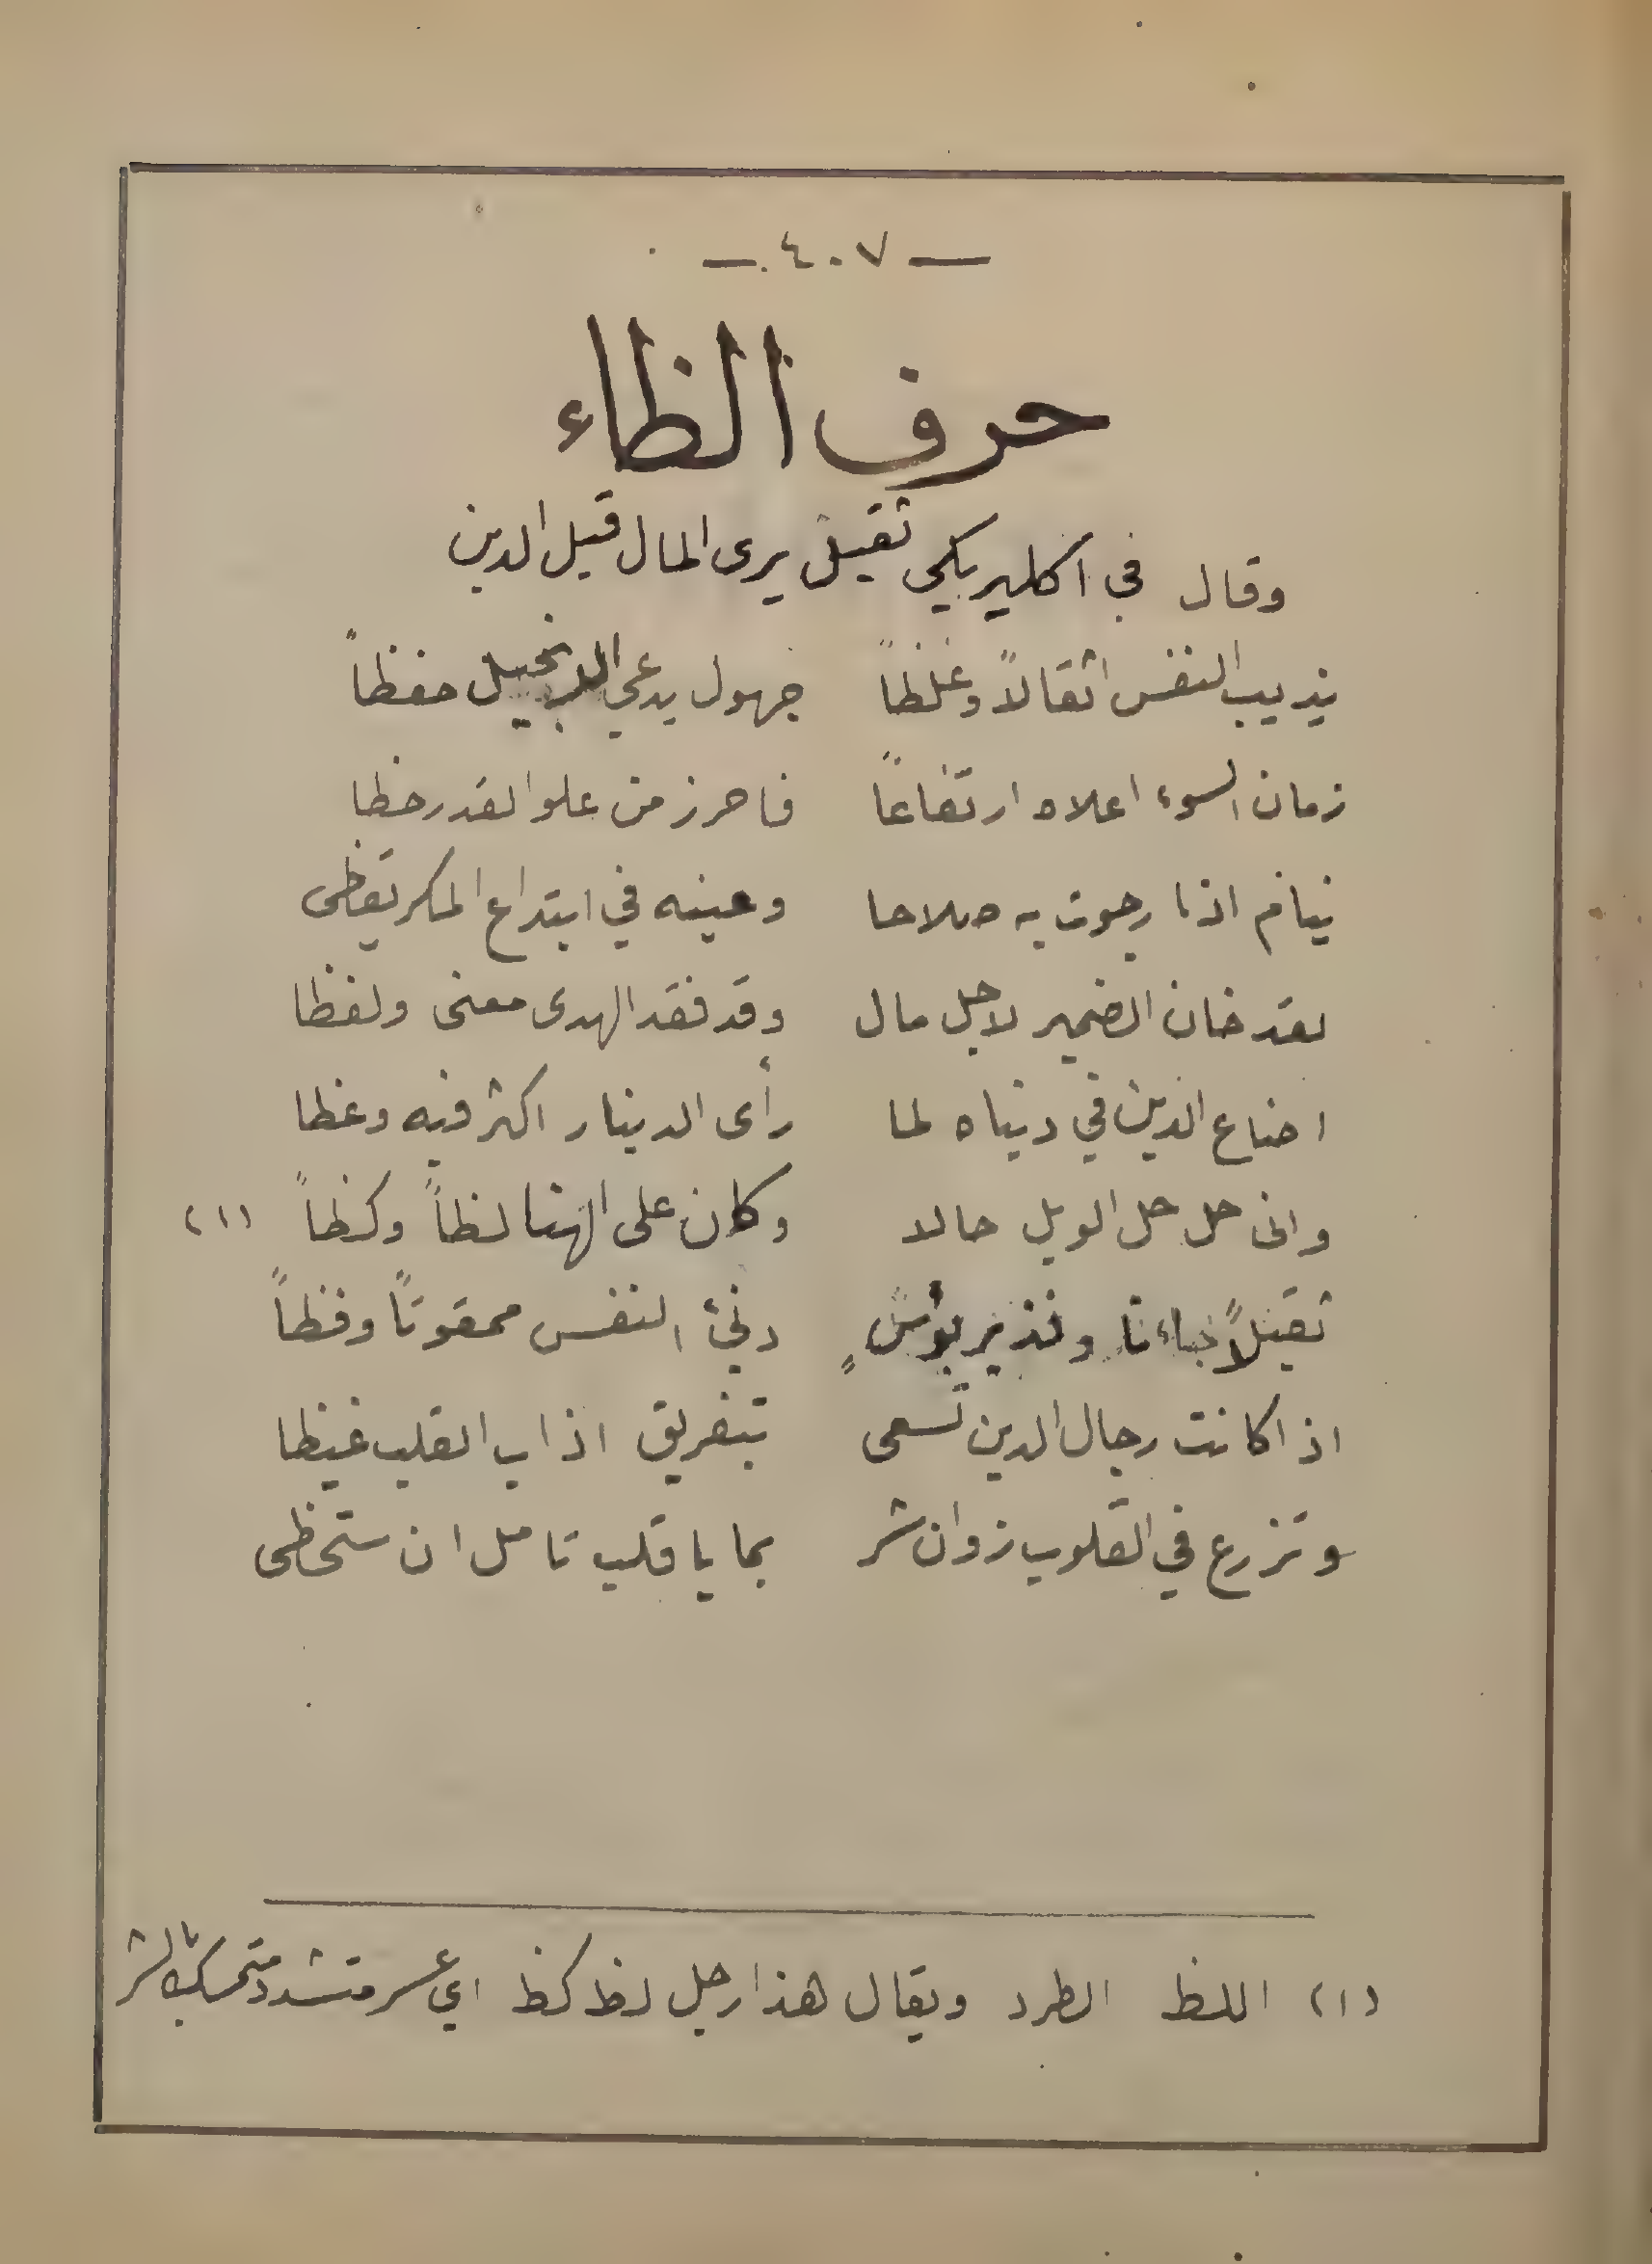 — ٤٠٧ —
حرف الظاء
وقال في اكليريكي ثقيل يرى المال قبل الدين
يذيب النفس اثقالاً وغلظاً جهول يدعي الانجيل حفظاً
زمان السوء اعلاه ارتفاعاً فاحرز من علو القدر حظا
ينام اذا رجوت به صلاحا وعينه في ابتداع المكر يقظى
لقد خان الضمير لاجل مال وقد فقد الهدى معنى ولفظا
اضاع الدين في دنياه لما رأى الدينار اكثر فيه وعظا
وانى حل حل الويل حالا وكان على الهنا لظاً وكظاً (١)
ثقيلاً جاءنا ونذير بؤسٍ دنيْ النفس ممقوتاً وفظاً
اذا كانت رجال الدين تسعى بتفريق اذاب القلب غيظا
وتزرع في القلوب زوان شر بما يا قلب تامل ان ستحظى
(١) اللظ الطرد ويقال هذا رجل لظ كظ اي عسر متشدد متمسك بالشر